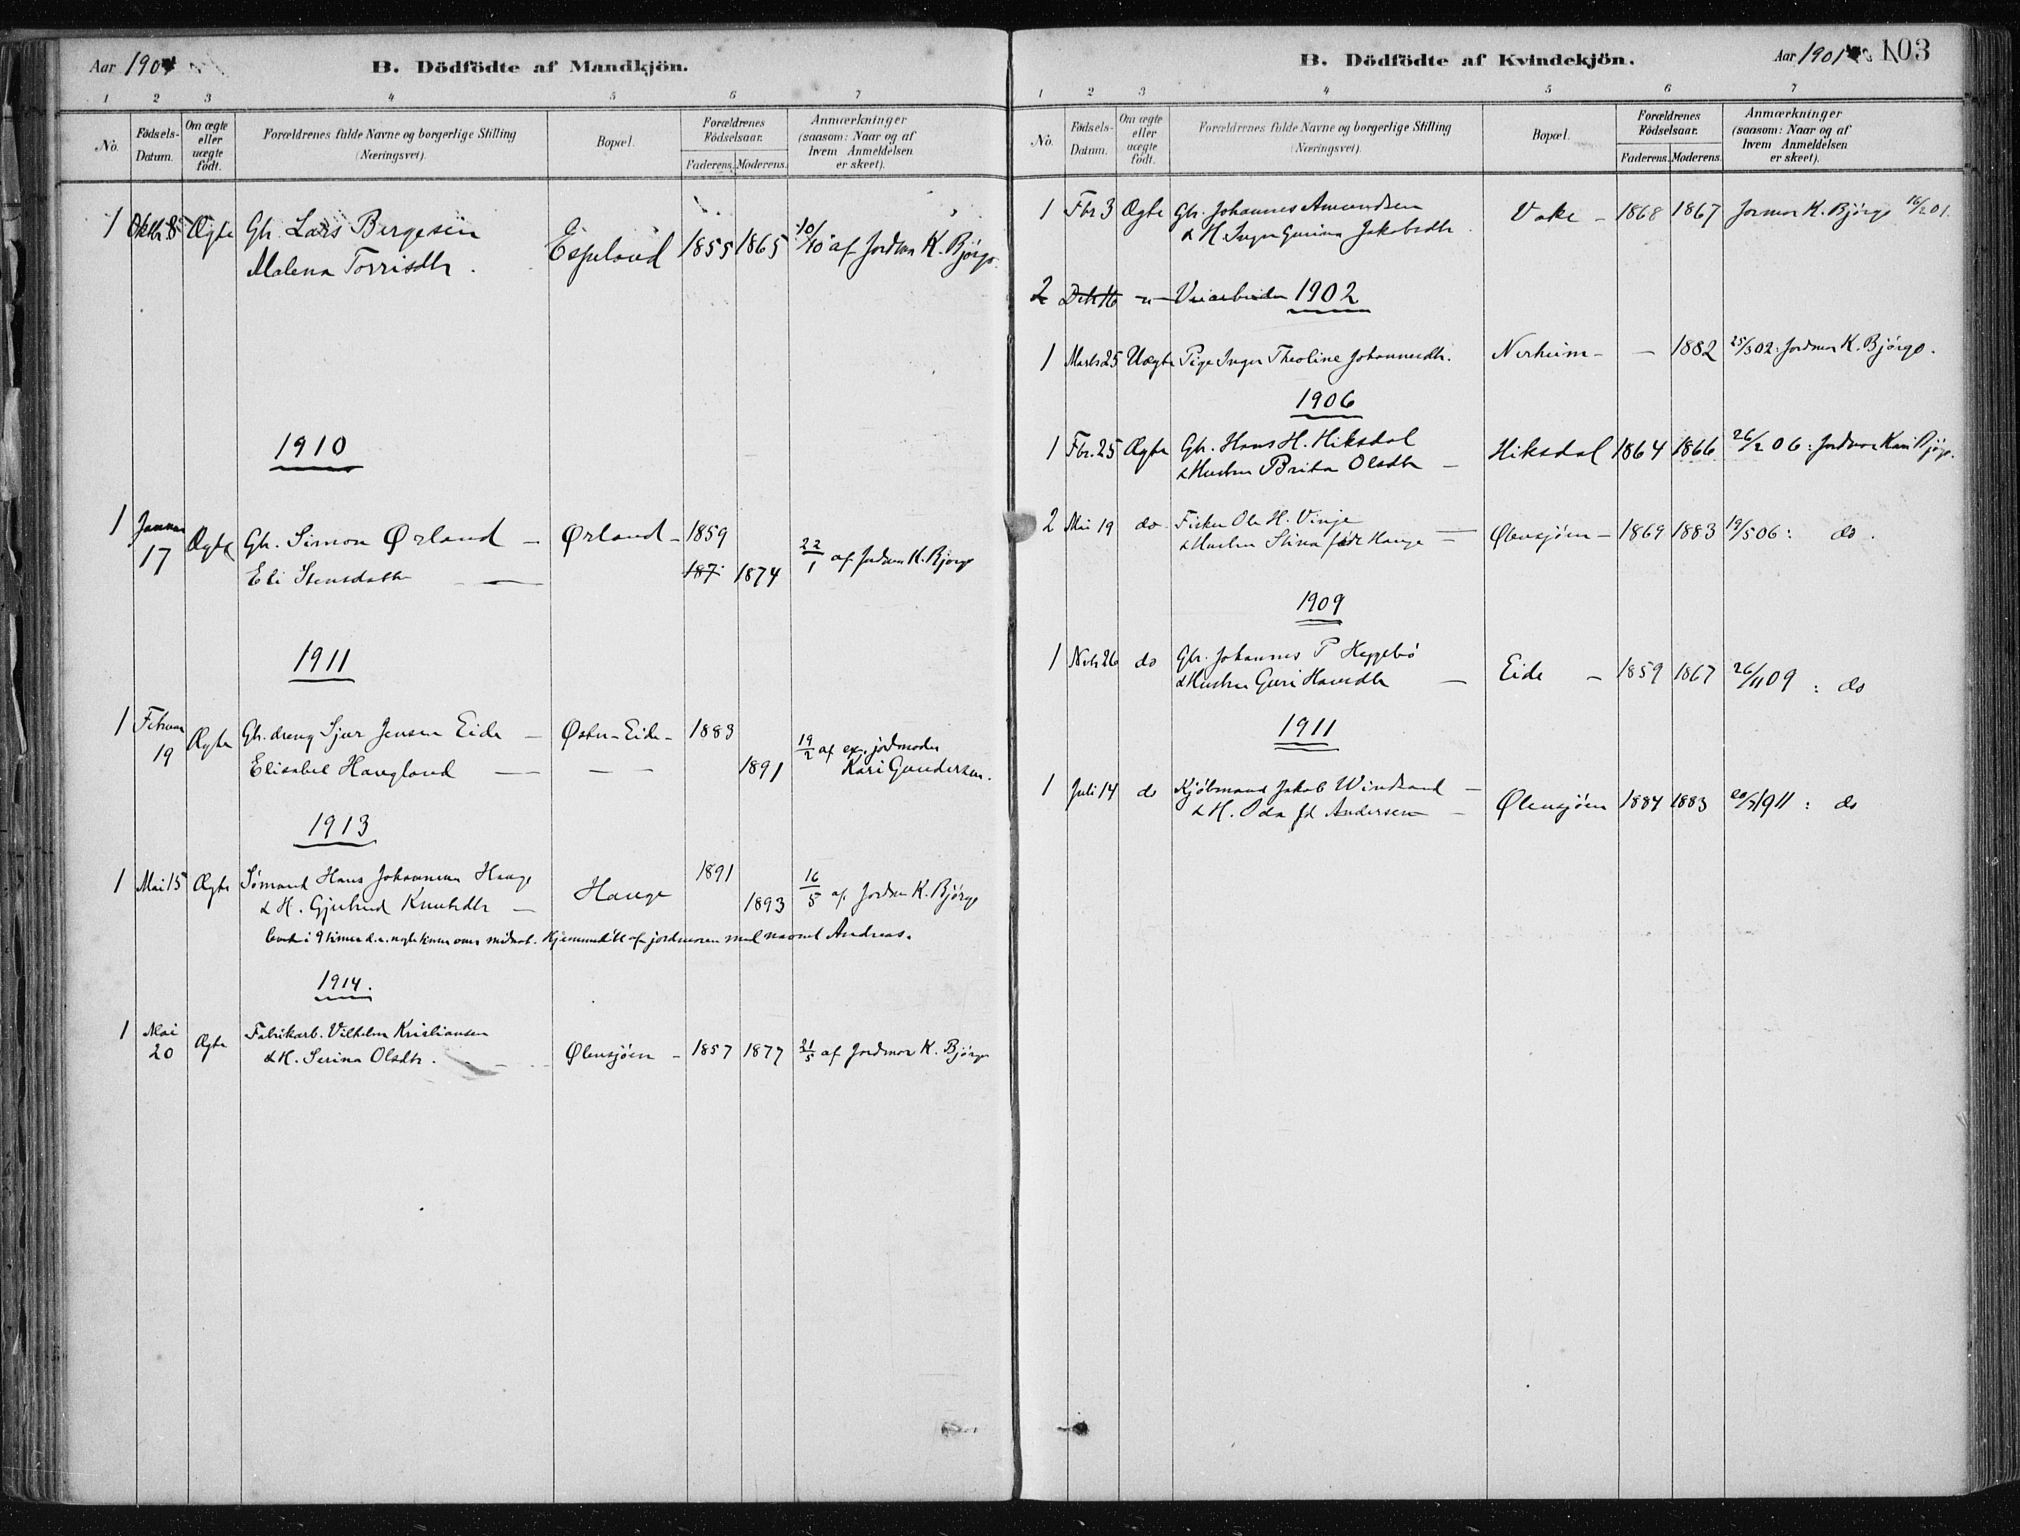 Aar 1904
B. Dödfödte af Mandkjön.
1 2 3 4 5 6 7
No.
Födsels-Datum.
Om ægte eller uægte födt.
Forældrenes fulde Navne og borgerlige Stilling (Næringsvei).
Bopæl.
Forældrenes Födselsaar.
Faderens. Moderens.
Anmærkninger (saasom: Naar og af hvem Anmeldelsen er skeet).
1 Oktbr 8 Ægte Gb. Lars Bergesen
Malena Torrisdtr.
Espeland 1855 1865 10/10 af Jordmor K. Bjørgo
1910
1 Januar 17 Ægte Gb. Simon Ørland — Ørland — 1859
Eli Stensdatter — 187 1874 22/1 af Jordmor K. Bjørgo
1911
1 Februar 19 Ægte Gb. dreng Sjur Jensen Eide — Østre-Eide — 1883
Elisabet Haugland — — — 1891 19/2 af ex. jordmoder Kari Gundersen.
1913
1 Mai 15 Ægte Sømand Hans Johannesen Hauge
& H. Gjertrud Knutsdtr — Hauge 1891 1893 16/5 af Jordmor K. Bjørgo
levde i 9 timer d.e. nogle timer over midnat. Hjemmedøbt af jordmoren med navnet Andreas.
1914.
1 Mai 20 Ægte Fabrikarb. Vilhelm Kristiansen
& H. Serina Olsdtr. Ølensjøen — 1857 1877 21/5 af Jordmor K. Bjørgo
B. Dödfödte af Kvindekjön.
Aar 1901 103
1 2 3 4 5 6 7
No.
Födsels-Datum.
Om ægte eller uægte födt.
Forældrenes fulde Navne og borgerlige Stilling (Næringsvei).
Bopæl.
Forældrenes Födselsaar.
Faderens. Moderens.
Anmærkninger (saasom: Naar og af hvem Anmeldelsen er skeet).
1 Fbr 3 Ægte Gb. Johannes Amundsen
& H. Inger Gurina Jakobsdtr. Vake — 1868 1867 Jormor K. Bjørgo 16/2 01.
2 Dcbr 16 — 1902
1 Marts 25 Uægte Pige Inger Theoline Johannesdtr. Nerheim — — 1882 25/3 02. Jordmor K. Bjørgo.
1906
1 Fbr. 25 Ægte Gb. Hans H. Hiksdal
& Hustru Brita Olsdtr — Hiksdal 1864 1866 26/2 06: Jordmor Kari Bjørgo.
2 Mai 19 do Fisker Ole H. Vinje
& Hustru Stina født Hauge — Ølensjøen — 1869 1883 19/5 06: do.
1909
1 Nvbr 26 do Gbr. Johannes P Heggebø
& Hustru Guri Hansdtr — Eide — 1859 1867 26/11 09: do
1911
1 Juli 14 do Kjøbmand Jakob Windsand —
& H. Oda fd Andersen — Ølensjøen 1884 1883 20/7 1911: do